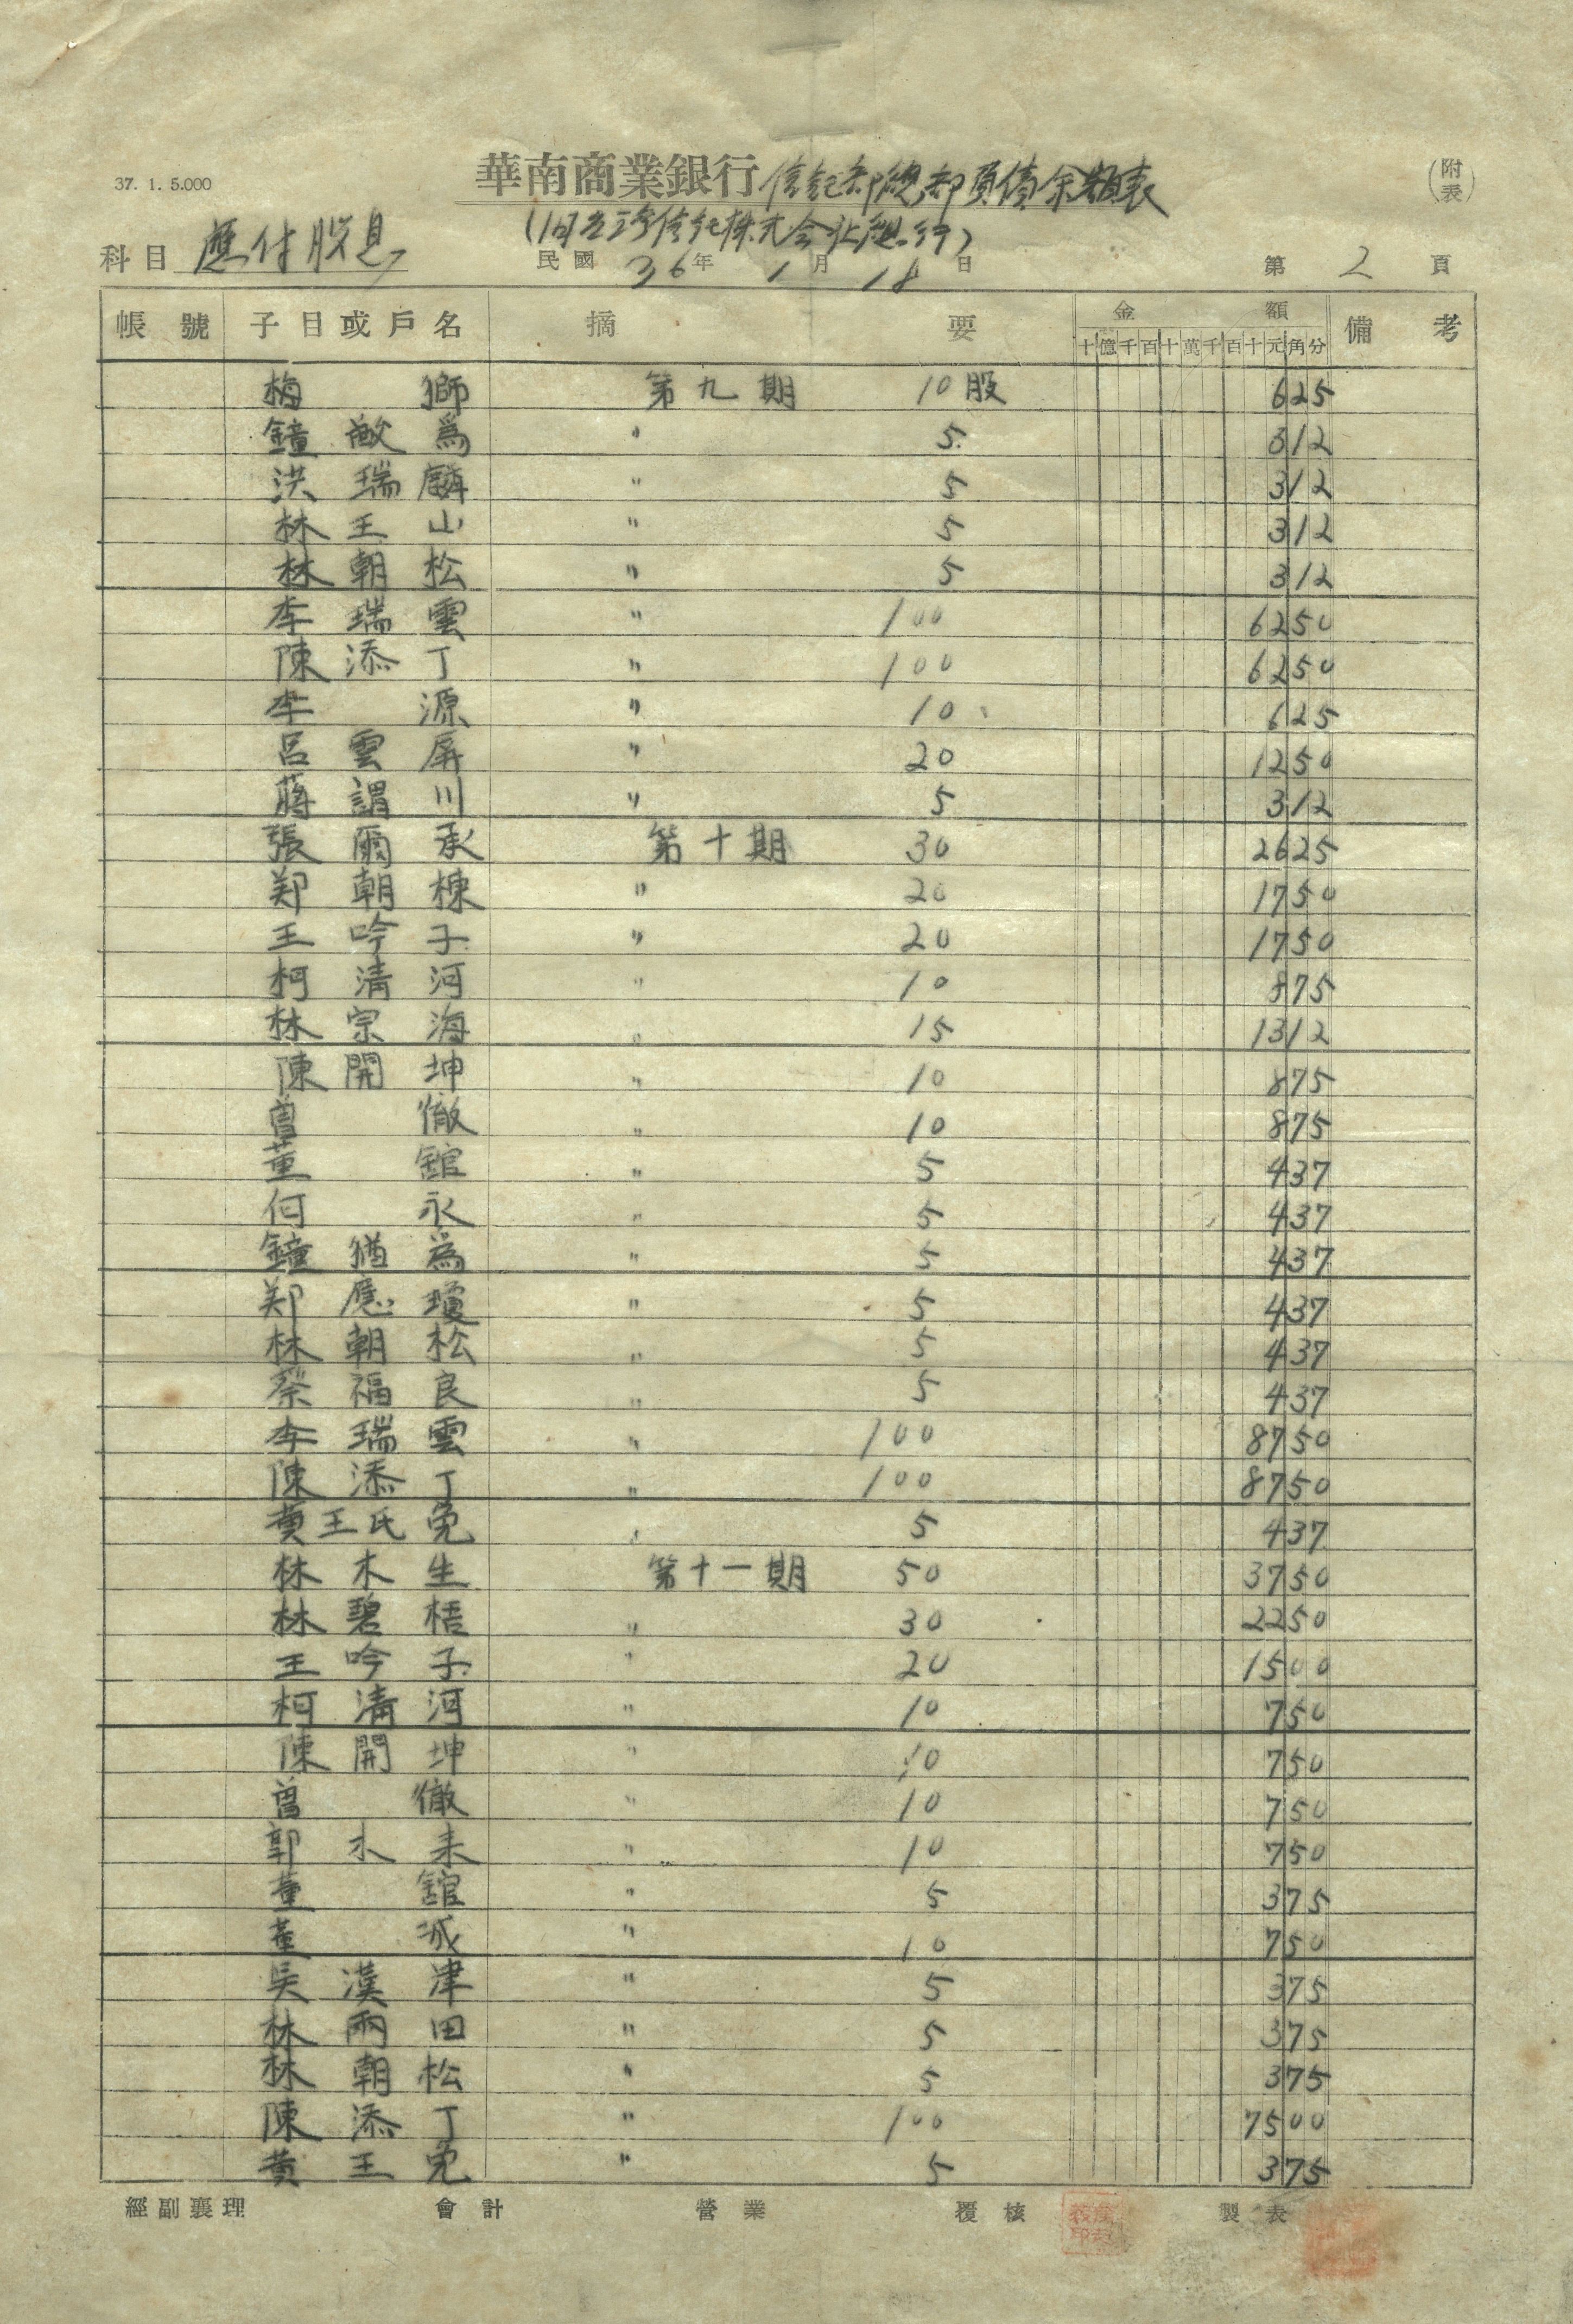 37. 1. 5.000
華南商業銀行信託部總部負債余額表
(附表)
(旧台湾信託株式会社趨行)
科目 應付股息
民國 36年 1月 18日
第 2 頁
帳號 子目或戶名 摘要 金額 備考
十億千百十萬千百十元角分
梅 獅 第九期 10股 625
鐘敏為 〃 5 312
洪瑞麟 〃 5 312
林王山 〃 5 312
林朝松 〃 5 312
李瑞雲 〃 100 6250
陳添丁 〃 100 6250
李 源 〃 10 625
呂雲屏 〃 20 1250
蔣謂川 〃 5 312
張爾承 第十期 30 2625
郑朝棟 〃 20 1750
王吟子 〃 20 1750
柯清河 〃 10 875
林宗海 〃 15 1312
陳開坤 〃 10 875
曾 徹 〃 10 875
董 舘 〃 5 437
何 永 〃 5 437
鐘猶為 〃 5 437
郑應瓊 〃 5 437
林朝松 〃 5 437
蔡福良 〃 5 437
李瑞雲 〃 100 8750
陳添丁 〃 100 8750
黄王氏免 〃 5 437
林木生 第十一期 50 3750
林碧梧 〃 30 2250
王吟子 〃 20 1500
柯清河 〃 10 750
陳開坤 〃 10 750
曾 徹 〃 10 750
郭木来 〃 10 750
董 舘 〃 5 375
董 城 〃 10 750
吳漢津 〃 5 375
林雨田 〃 5 375
林朝松 〃 5 375
陳添丁 〃 100 7500
黄王免 〃 5 375
經副襄理 會計 營業 覆核 製表